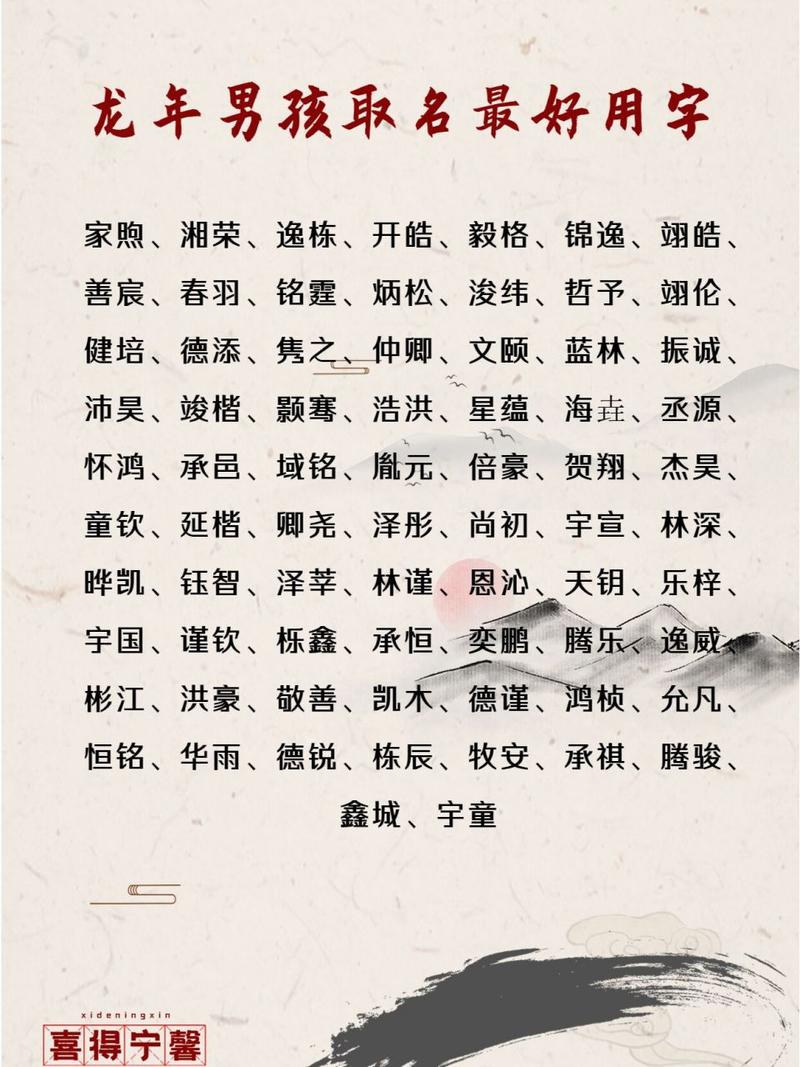 龙年男孩取名最好用字
家煦、湘荣、逸栋、开皓、毅格、锦逸、翊皓、
善宸、春羽、铭霆、炳松、浚纬、哲予、翊伦、
健培、德添、隽之、仲卿、文颐、蓝林、振诚、
沛昊、竣楷、颢骞、浩洪、星蕴、海垚、丞源、
怀鸿、承邑、域铭、胤元、倍豪、贺翔、杰昊、
童钦、延楷、卿尧、泽彤、尚初、宇宣、林深、
晔凯、钰智、泽莘、林谨、恩沁、天钥、乐梓、
宇国、谨钦、栎鑫、承恒、奕鹏、腾乐、逸威、
彬江、洪豪、敬善、凯木、德谨、鸿桢、允凡、
恒铭、华雨、德锐、栋辰、牧安、承祺、腾骏、
鑫城、宇童
xideningxin
喜得宁馨